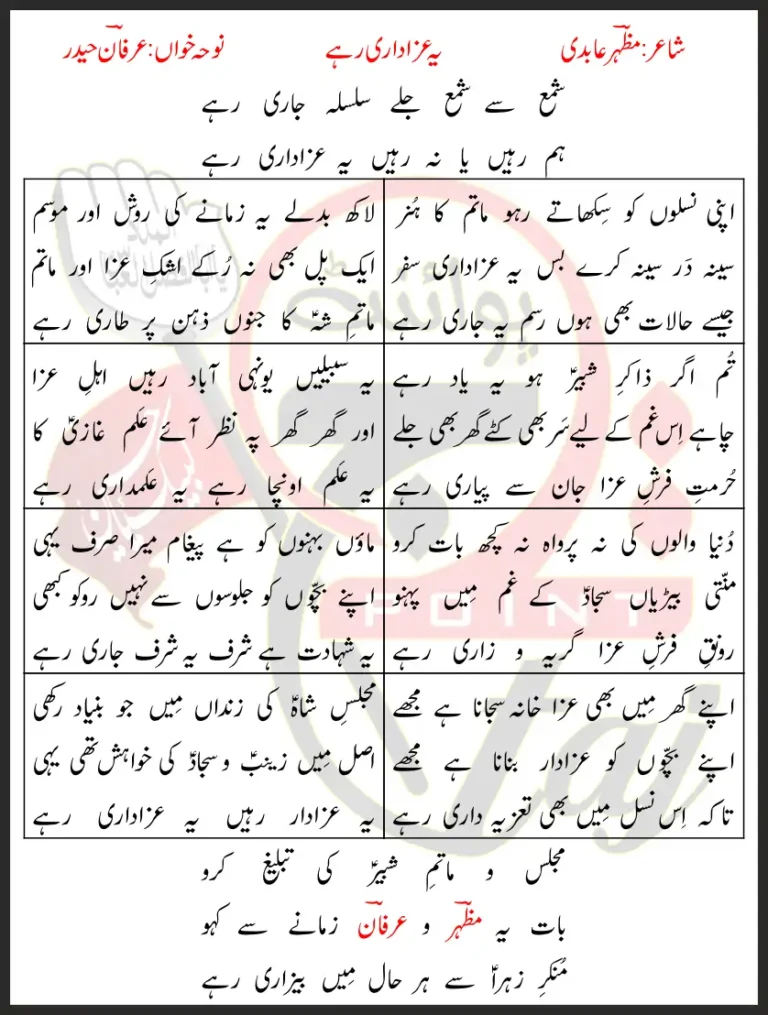 شاعر: مظہرؔ عابدی یہ عزاداری رہے نوحہ خواں: عرفانؔ حیدر
شمع سے شمع جلے سلسلہ جاری رہے
ہم رہیں یا نہ رہیں یہ عزاداری رہے
اپنی نسلوں کو سِکھاتے رہو ماتم کا ہُنر
سینہ دَر سینہ کرے بس یہ عزاداری سفر
جیسے حالات بھی ہوں رسم یہ جاری رہے
لاکھ بدلے یہ زمانے کی روش اور موسم
ایک پل بھی نہ رُکے اشکِ عزا اور ماتم
ماتمِ شہؑ کا جنوں ذہن پر طاری رہے
تُم اگر ذاکرِ شبیرؑ ہو یہ یاد رہے
چاہے اِس غم کے لیے سَر بھی کٹے گھر بھی جلے
حُرمتِ فرشِ عزا جان سے پیاری رہے
یہ سبیلیں یونہی آباد رہیں اہلِ عزا
اور گھر گھر پہ نظر آئے عَلم غازیؑ کا
یہ عَلم اونچا رہے یہ عَلمداری رہے
دُنیا والوں کی نہ پرواہ نہ کچھ بات کرو
منّتی بیڑیاں سجادؑ کے غم مِیں پہنو
رونقِ فرشِ عزا گریہ و زاری رہے
ماؤں بہنوں کو ہے پیغام میرا صرف یہی
اپنے بچّوں کو جلوسوں سے نہیں روکو کبھی
یہ شہادت ہے شرف یہ شرف جاری رہے
اپنے گھر مِیں بھی عزا خانہ سجانا ہے مجھے
اپنے بچّوں کو عزادار بنانا ہے مجھے
تاکہ اِس نسل مِیں بھی تعزیہ داری رہے
مجلسِ شاہؑ کی زنداں مِیں جو بنیاد رکھی
اصل مِیں زینبؑ و سجادؑ کی خواہش تھی یہی
یہ عزادار رہیں یہ عزاداری رہے
مجلس و ماتمِ شبیرؑ کی تبلیغ کرو
بات یہ مظہرؔ و عرفانؔ زمانے سے کہو
مُنکرِ زہراؑ سے ہر حال مِیں بیزاری رہے
پوائنٹ
POINT
Taj